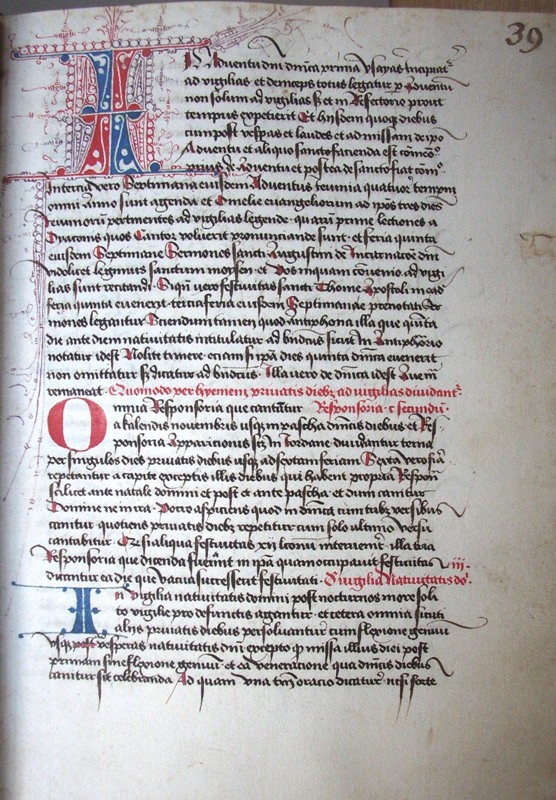 39
In Adventu dni dnica prima ysayas incipiatr
ad vigilias et deinceps totus legatur p adventu
non solum ad vigilias sed et in Refectorio prout
tempus expetierit Et hiisdem quoqz diebus
Adventu et aliquo sancto facienda est
prius de adventu et postea de sancto fiat
Intercidero Septimana eiusdem Adventus ieiunia quatuor
omni Anno sunt agenda et Omelie evangeliorum ad ipos tres dies
ieiuniorum pertinentes ad vigilias legende quarum prime lectiones a
Dyaconis quos Cantor voluerit pronunciande sunt et feria quinta
eiusdem Septimane Sermones sancti Augustini de Incarnacoe dni
legimus sanctum moysen et Vos inquam convenio ad vigi
lias sunt recitandi Si qui vero festivitas sancti Thome Apostoli in ead
feria quinta evenerit tercia feria eiusdem Septimane prenotati Ser
mones legantur Sciendum tamen quod antiphona illa que quinta
die ante diem nativitatis intitulatur ad bndictus sicut in Antiphorio
notatur idest Nolite timere eciam si ipa dies quinta dnica evenerit
non omittatur sz dicatur ad bndictus Illa vero de dnica idest Ave m
remaneat Quomodo per hyemem privatis diebz ad vigilias dividantr
Omnia Responsoria que cantantur Responsoria
a kalendis novembris usqz in pascha dnicis diebus et Res
ponsoria Apparicionis scz in Iordane dividantur terna
per singulos dies privatis diebus usqz ad septam feriam Sexta vero
repetantur a capite exceptis illis diebus qui habent propria Respon
scilicet ante natale domini et post et ante pascha et dum canitur
Domine ne in ira Porro aspiciens quod in dnica cum tribz versibus
canitur quotiens privatis diebz repetitur cum solo ultimo versu
cantabitur Et si aliqua festivitas xii leconu intervenerit illa tria
Responsoria que dicenda fuerint in ipa quam occupavit festivitas iii
dicantur ea die que vacua successerit festivitati In vigilia Nativitatis do
In vigilia nativitatis domini post nocturnos more soli
to vigilie pro defunctis agentur et cetera omnia sicuti
aliis privatis diebus persolvantur cum flexione genuu
usqz post vesperas nativitatis dni excepto qz missa illius diei post
primam sine flexione genuu et ea veneracione qua dnicis diebus
canitur sit celebranda Ad quam una tm oracio dicatur nisi forte